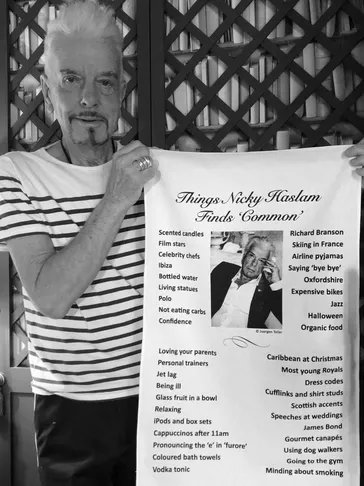 Things Nicky Haslam
Finds 'Common'
Scented candles
Film stars
Celebrity chefs
Ibiza
Bottled water
Living statues
Polo
Not eating carbs
Confidence
Richard Branson
Skiing in France
Airline pyjamas
Saying 'bye bye'
Oxfordshire
Expensive bikes
Jazz
Halloween
Organic food
© Juergen Teller
Loving your parents
Personal trainers
Jet lag
Being ill
Glass fruit in a bowl
Relaxing
iPods and box sets
Cappuccinos after 11am
Pronouncing the 'e' in 'furore'
Coloured bath towels
Vodka tonic
Caribbean at Christmas
Most young Royals
Dress codes
Cufflinks and shirt studs
Scottish accents
Speeches at weddings
James Bond
Gourmet canapés
Using dog walkers
Going to the gym
Minding about smoking